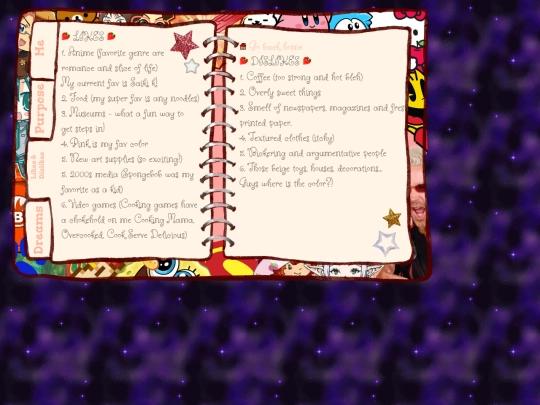 Me
Purpose
Likes &
Dislikes
Dreams
LIKES
1. Anime (favorite genre are
romance and slice of life)
My current fav is Saiki k!
2. Food (my super fav is any noodles)
3. Museums - what a fun way to
get steps in)
4. Pink is my fav color
5. New art supplies (so exciting!)
5. 2000s media (Spongebob was my
favorite as a kid)
6. Video games (Cooking games have
a chokehold on me Cooking Mama,
Overcooked, Cook Serve Delicious)
Go back home
DISLIKES
1. Coffee (too strong and hot bleh)
2. Overly sweet things
3. Smell of newspapers, magazines and fres
printed paper.
4. Textured clothes (itchy)
5. Bickering and argumentative people
6. Those beige toys, houses, decorations..
Guys where is the color?!